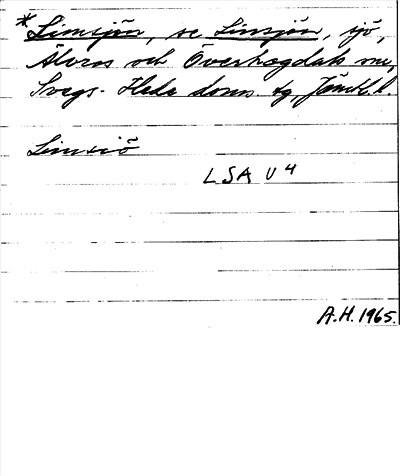 *Limsjön, se Linsjön, sjö,
Älvros och Överhogdals snr,
Svegs- Hede doms. tg, Jämtl. l.
Limsiö
LSA U 4
A.H. 1965.